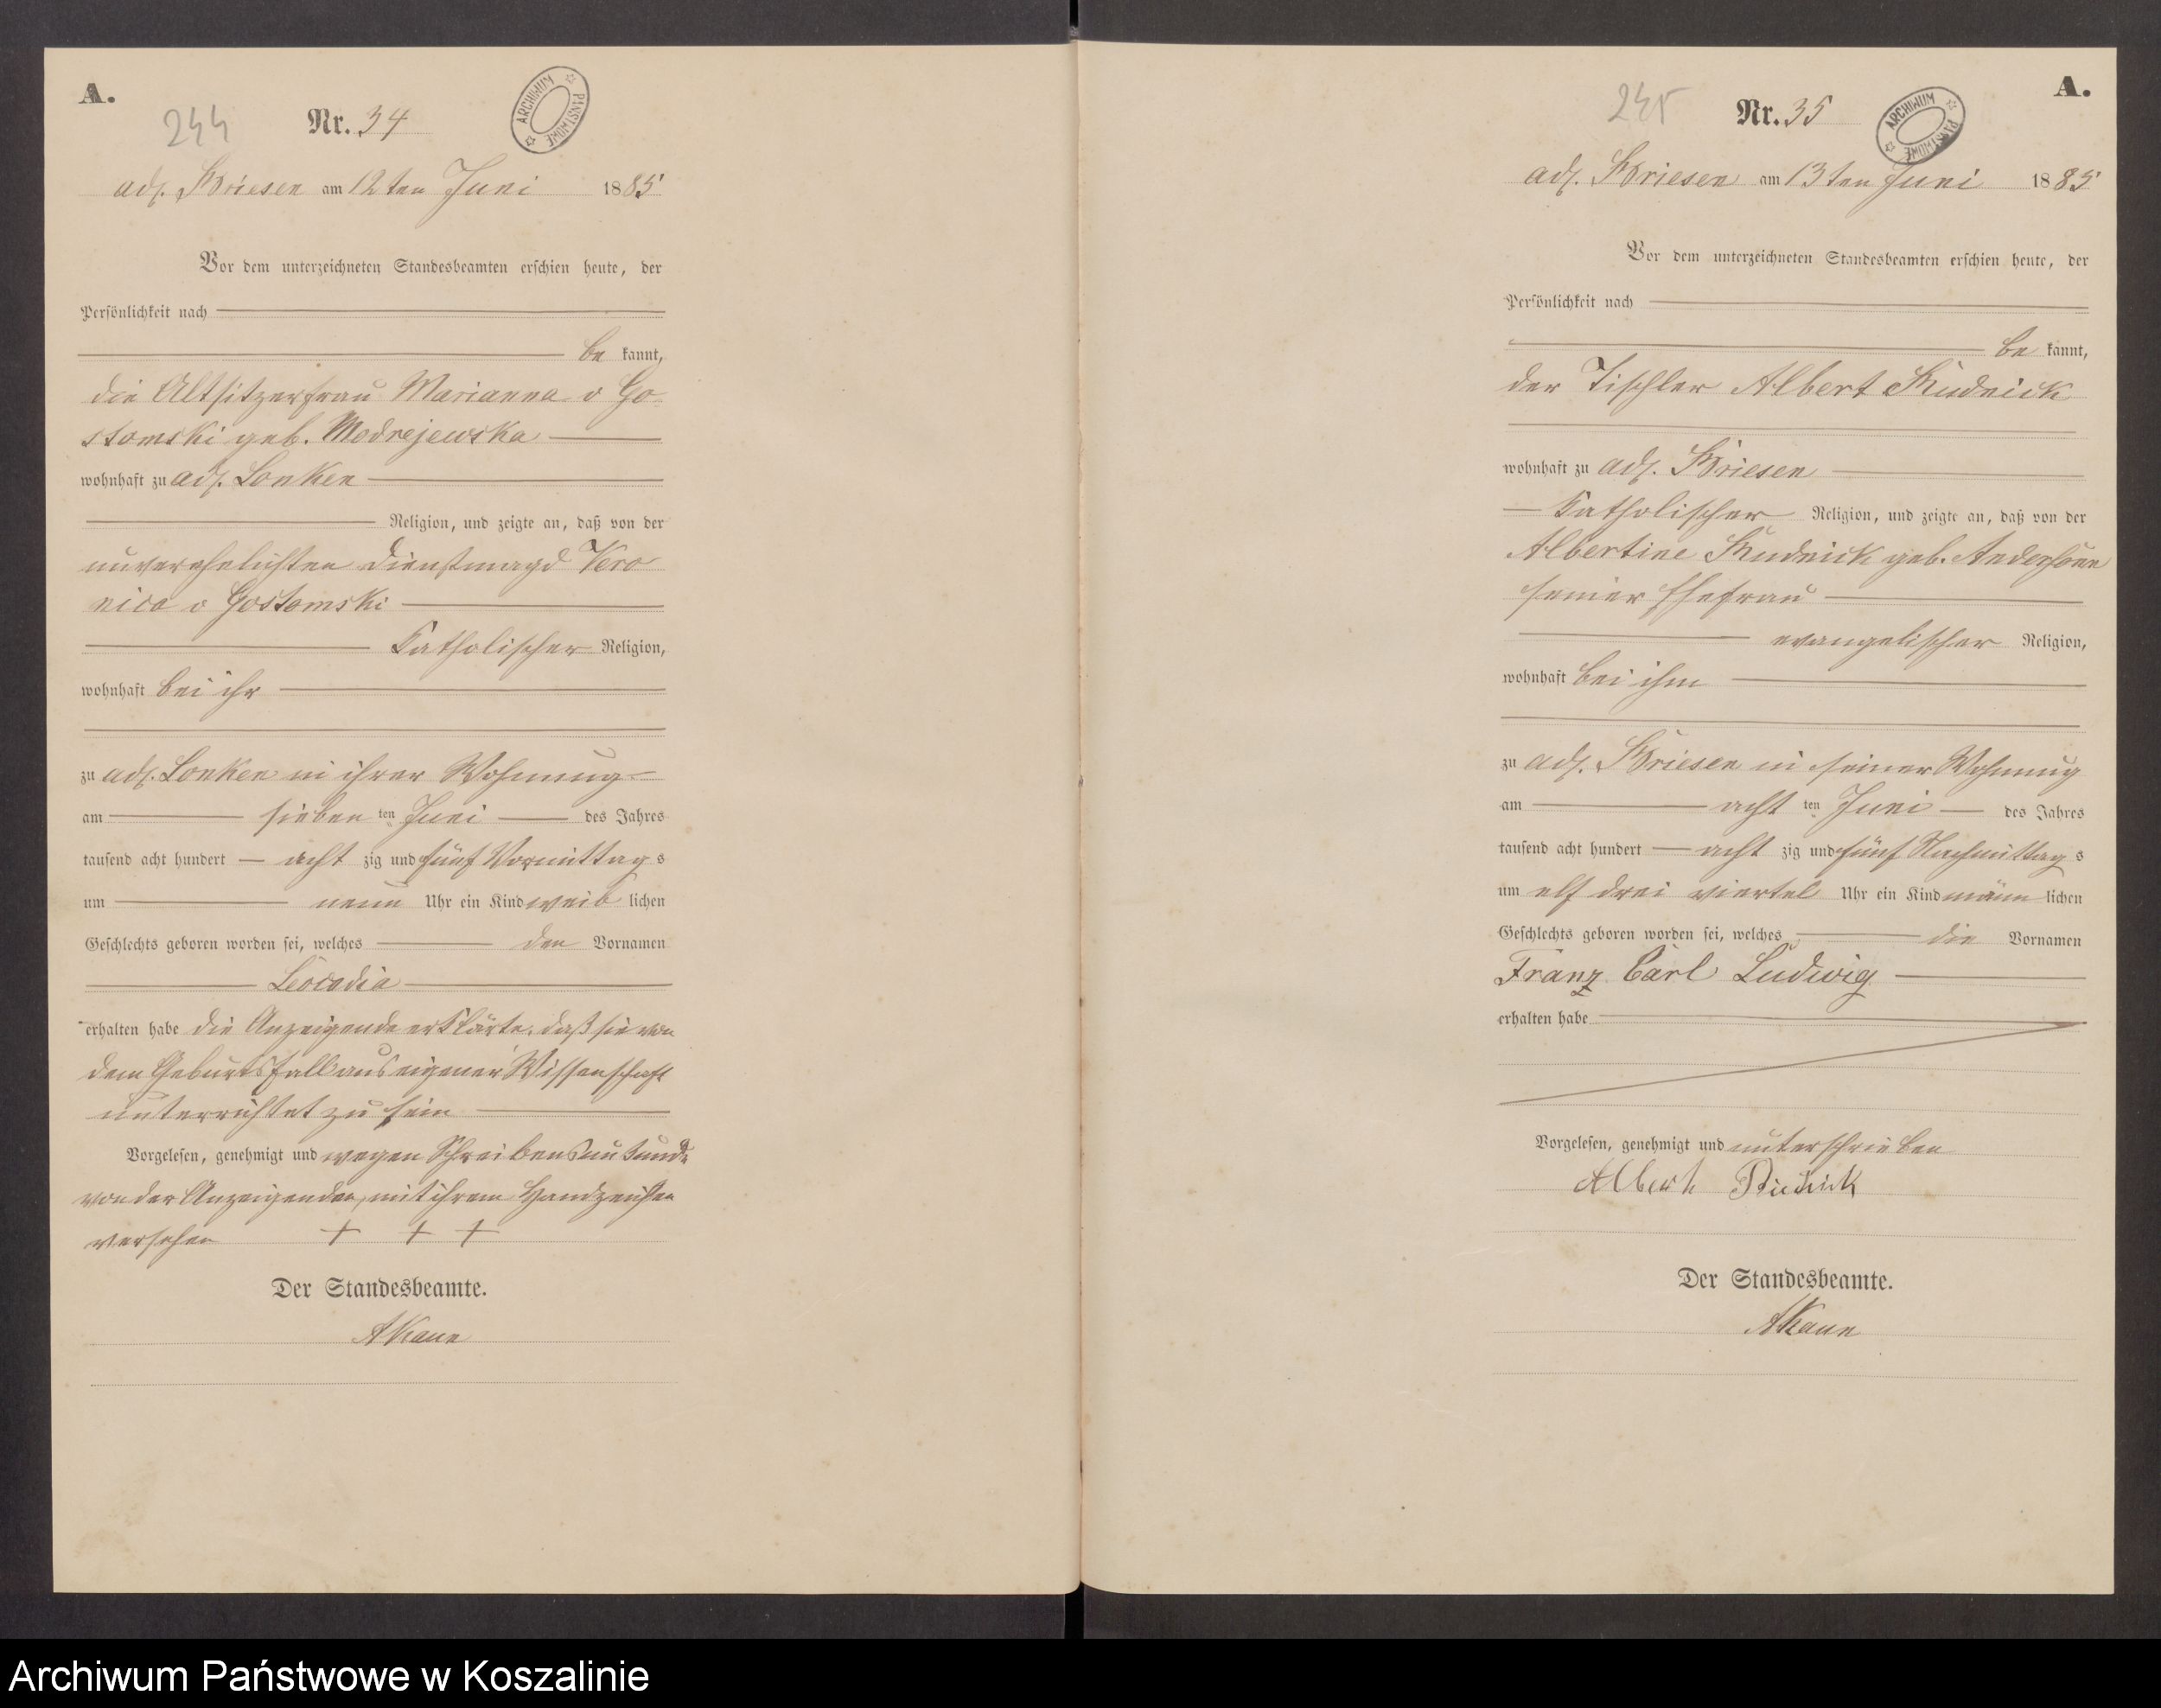 A.
244
Nr. 34
ARCHIWUM PAŃSTWOWE
adl. Briesen am 12ten Juni 1885
Vor dem unterzeichneten Standesbeamten erschien heute, der
Persönlichkeit nach
be kannt,
die Altsitzerfrau Marianna v Go
stomski geb. Modrejewska
wohnhaft zu adl. Lonken
Religion, und zeigte an, daß von der
unverehelichten Dienstmagd Vero
nica v Gostomski
Katholischer Religion,
wohnhaft bei ihr
zu adl. Lonken in ihrer Wohnung
am sieben ten Juni des Jahres
tausend acht hundert acht zig und fünf Vormittag s
um neun Uhr ein Kind weib lichen
Geschlechts geboren worden sei, welches den Vornamen
Leocadia
erhalten habe die Anzeigende erklärte, daß sie von
dem Geburtsfall aus eigener Wissenschaft
unterrichtet zu sein
Vorgelesen, genehmigt und wegen Schreibensunkunde
von der Anzeigenden, mit ihrem Handzeichen
versehen + + +
Der Standesbeamte.
AKaun
A.
245
Nr. 35
ARCHIWUM PAŃSTWOWE
adl. Briesen am 13ten Juni 1885
Vor dem unterzeichneten Standesbeamten erschien heute, der
Persönlichkeit nach
be kannt,
der Tischler Albert Rudnick
wohnhaft zu adl. Briesen
Katholischer Religion, und zeigte an, daß von der
Albertine Rudnick geb.
seiner Ehefrau
evangelischer Religion,
wohnhaft bei ihm
zu adl. Briesen in seiner Wohnung
am acht ten Juni des Jahres
tausend acht hundert acht zig und fünf Nachmittag s
um elf drei viertel Uhr ein Kind männ lichen
Geschlechts geboren worden sei, welches die Vornamen
Franz Carl Ludwig
erhalten habe
Vorgelesen, genehmigt und unterschrieben
Albert Rudnick
Der Standesbeamte.
AKaun
Archiwum Państwowe w Koszalinie